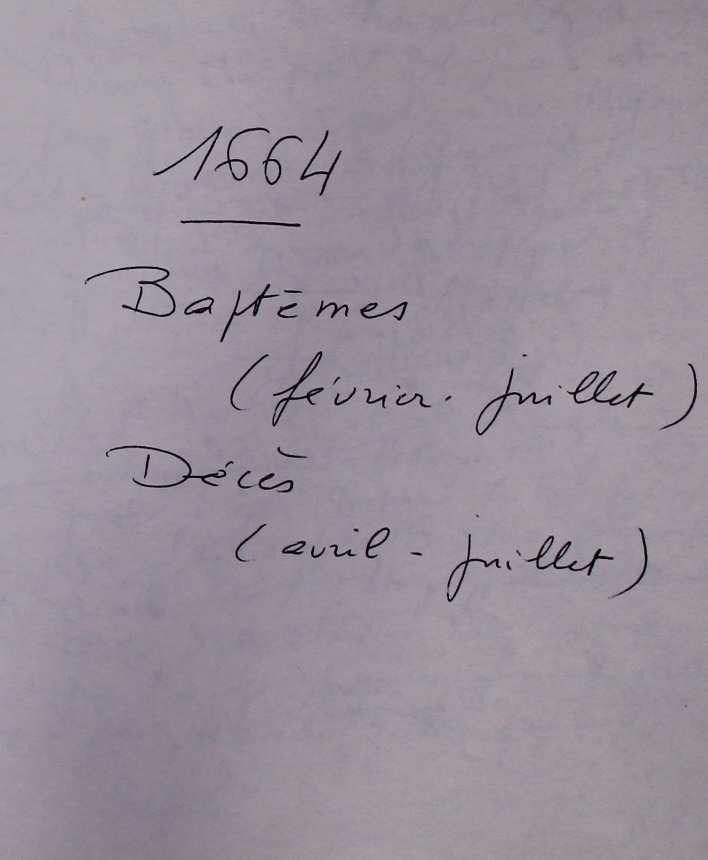 1664
Baptêmes
(février - juillet)
Décès
(avril - juillet)